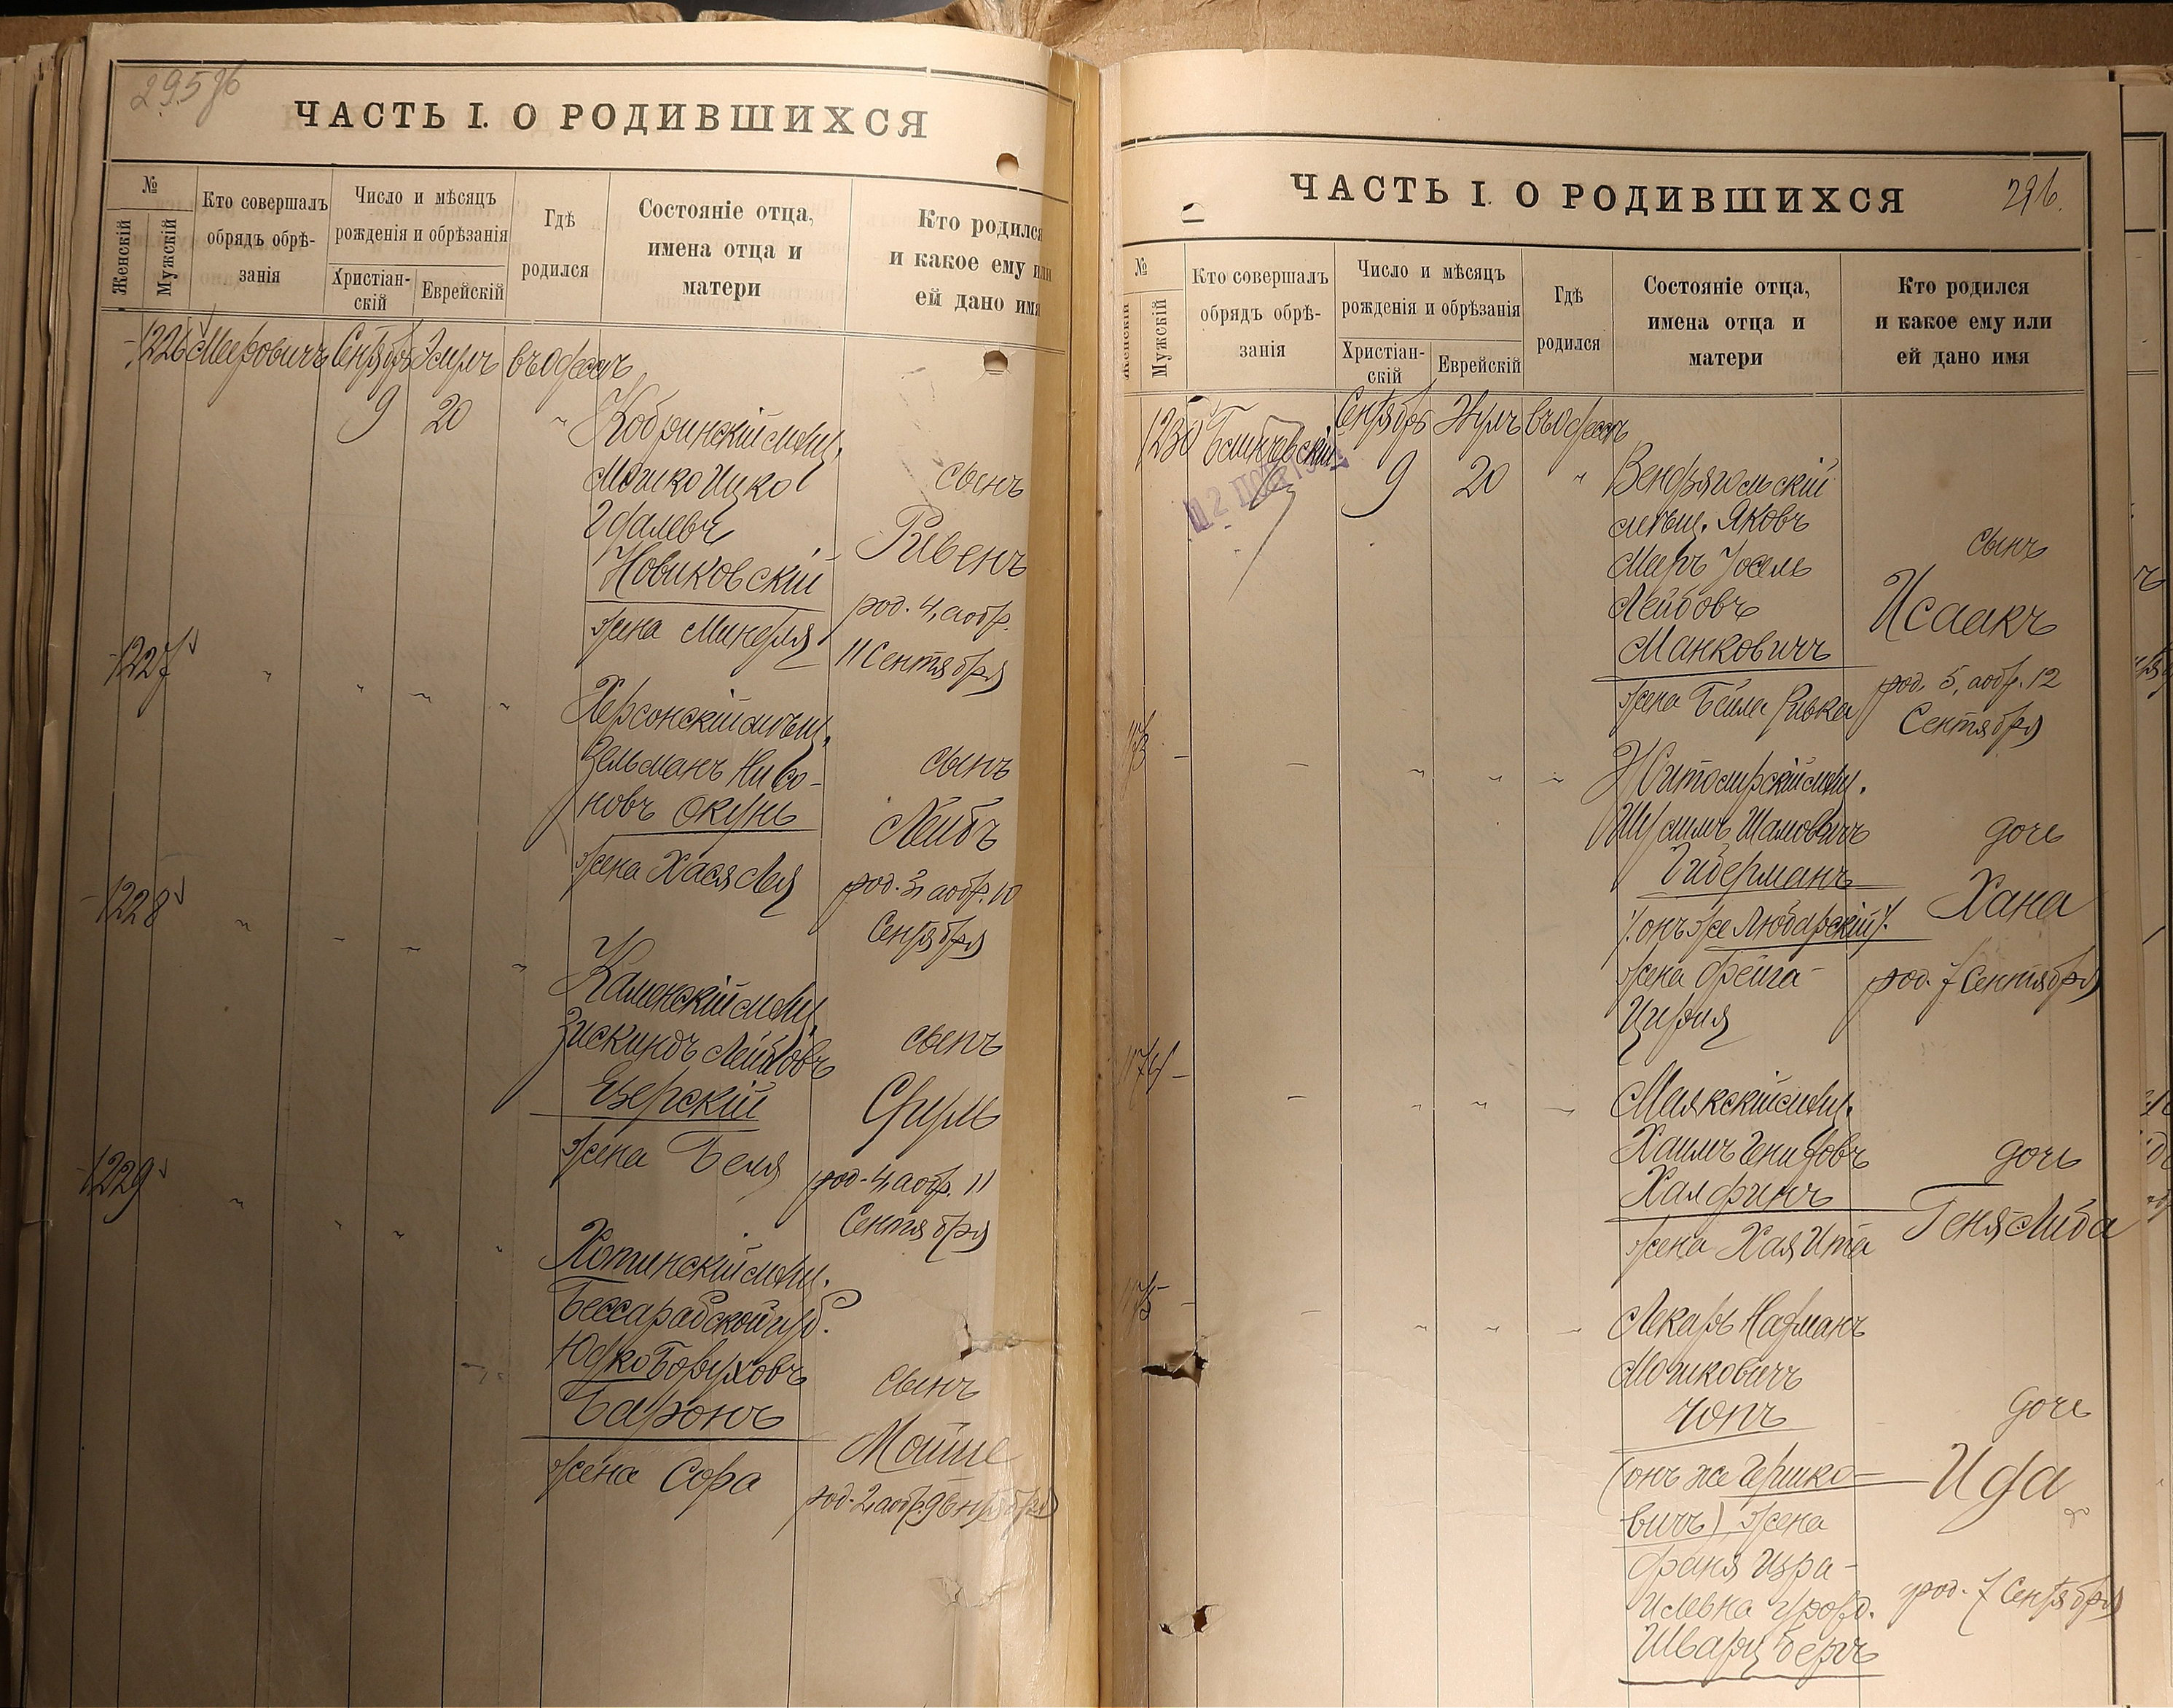 ЧАСТЬ I. О РОДИВШИХСЯ
№
Женскій
Мужскій
Кто совершалъ
обрядъ обрѣ-
занія
Число и мѣсяцъ
рожденія и обрѣзанія
Христіан-
скій
Еврейскій
Гдѣ
родился
Состояніе отца,
имена отца и
матери
Кто родился
и какое ему или
ей дано имя
1226 Меровичъ Сентябрь Элулъ въ Одессѣ
9 20
Кобринскій мѣщ.
Мошко Ицко
Новиковскій
жена Миндля
сынъ
Рувенъ
род. 4, а обр.
11 Сентября
1227
Херсонскій мѣщ.
Зельманъ Нисо-
новъ Окунь
жена Хася Лея
сынъ
Лейбъ
род. 3, а обр. 10
Сентября
1228
Каменскій мѣщ.
Зискиндъ Лейбовъ
Езерскій
жена Беля
сынъ
Сруль
род. 4, а обр. 11
Сентября
1229
Хотинскій мѣщ.
Бессарабской губ.
Юдко Боруховъ
Баронъ
жена Сора
сынъ
Мойше
род. 2, а обр. 9 Сентября
ЧАСТЬ I. О РОДИВШИХСЯ
296.
№
Женскій
Мужскій
Кто совершалъ
обрядъ обрѣ-
занія
Число и мѣсяцъ
рожденія и обрѣзанія
Христіан-
скій
Еврейскій
Гдѣ
родился
Состояніе отца,
имена отца и
матери
Кто родился
и какое ему или
ей дано имя
1230 Сентябрь Элулъ въ Одессѣ
9 20
Вендзягольскій
мѣщ. Яковъ
Меръ Іосель
Лейбовъ
Манковичъ
жена Бейла Ривка
сынъ
Исаакъ
род. 5, а обр. 12
Сентября
Житомирскій мѣщ.
Шулимъ Шамовичъ
Гиберманъ
/: онъ же Любарскій :/
жена Фейга
Цирля
дочь
Хана
род. 7 Сентября
Маякскій мѣщ.
Хаимъ Гениховъ
Халфинъ
жена Хая Ита
дочь
Геня Либа
Лекарь Нахманъ
Мошковичъ
Чопъ
(онъ же Гершко-
вичъ) жена
Фаня Изра-
илевна урожд.
Шварцбергъ
дочь
Ида
род. 7 Сентября